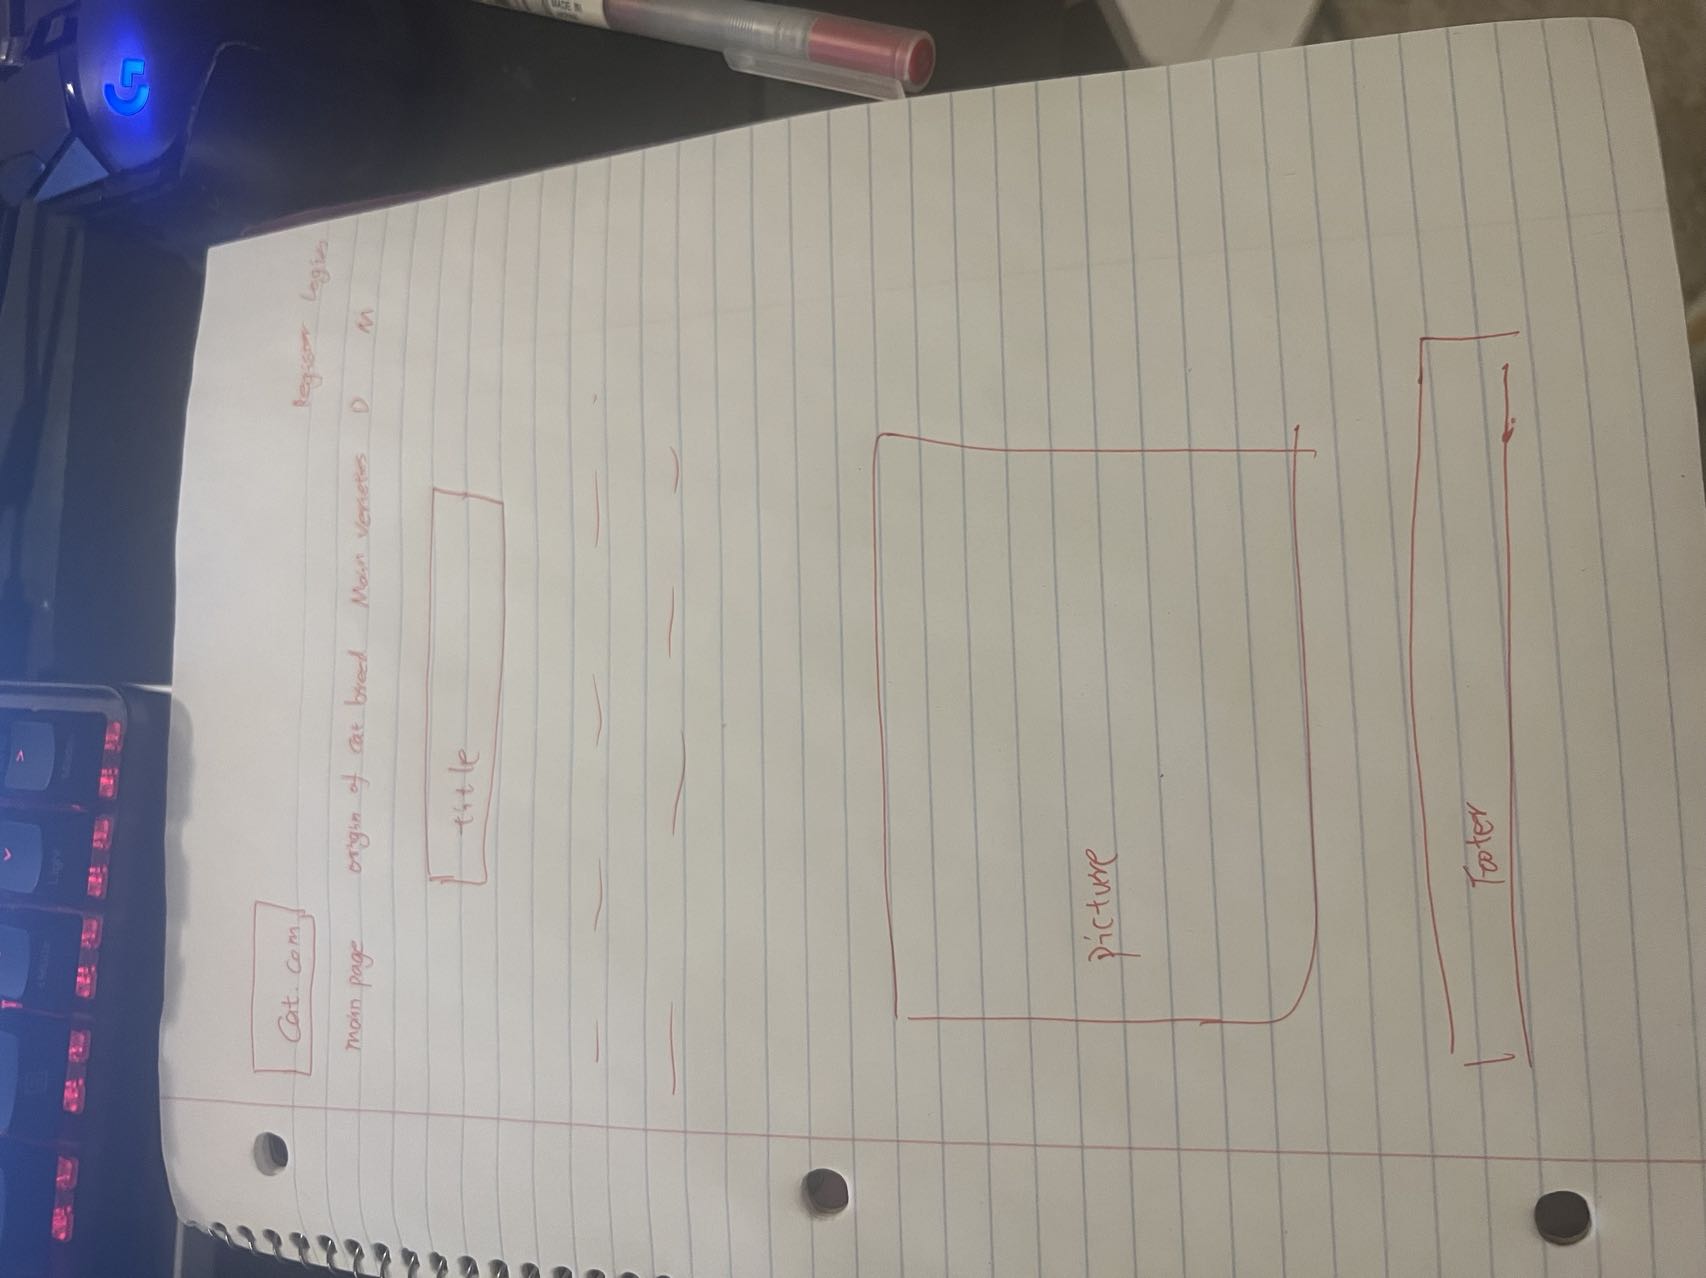 Cat.com
Register Login
main page origin of cat breed Main D M
title
picture
Footer
Light